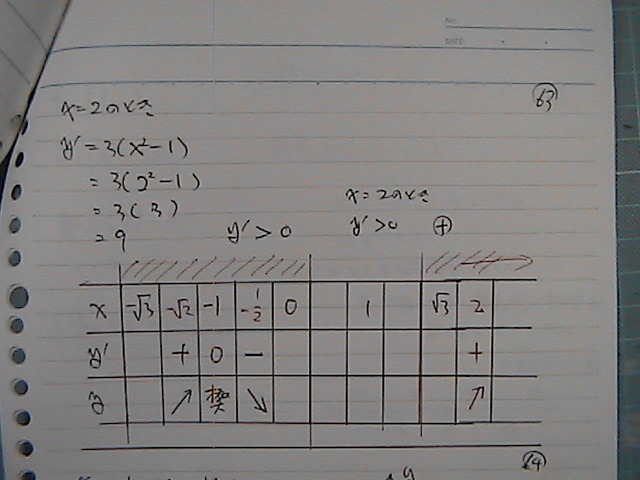 No.
DATE
63
x=2のとき
y′=3(x²-1)
=3(2²-1)
=3(3)
=9
y′>0
x=2のとき
y′>0 ⊕
x -√3 -√2 -1 -1/2 0 1 √3 2
y′ + 0 - +
y ↗ ↘ ↗
64